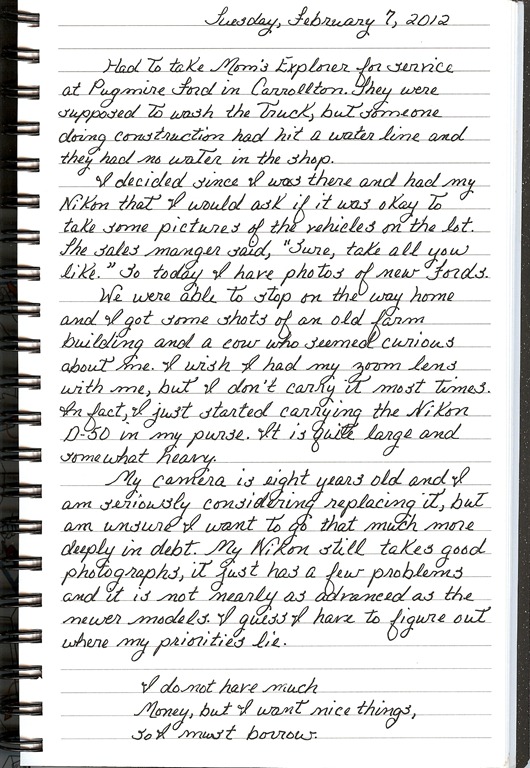 Tuesday, February 7, 2012
Had to take Mom's Explorer for service
at Pugmire Ford in Carrollton. They were
supposed to wash the Truck, but someone
doing construction had hit a water line and
they had no water in the shop.
I decided since I was there and had my
Nikon that I would ask if it was okay to
take some pictures of the vehicles on the lot.
The sales manger said, "Sure, take all you
like." So today I have photos of new Fords.
We were able to stop on the way home
and I got some shots of an old farm
building and a cow who seemed curious
about me. I wish I had my zoom lens
with me, but I don't carry it most times.
In fact, I just started carrying the Nikon
D-50 in my purse. It is quite large and
somewhat heavy.
My camera is eight years old and I
am seriously considering replacing it, but
am unsure I want to go that much more
deeply in debt. My Nikon still takes good
photographs, it just has a few problems
and it is not nearly as advanced as the
newer models. I guess I have to figure out
where my priorities lie.
I do not have much
Money, but I want nice things,
so I must borrow.